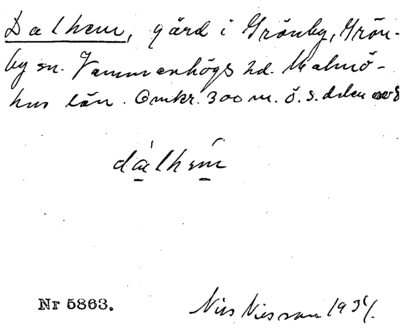 Dalhem, gård i Grönby, Grön-
by sn. Vemmenhögs hd. Malmö-
hus län. Omkr. 300 m. ö. s.
dalhem
Nr 5863.
Nils Nilsson 193